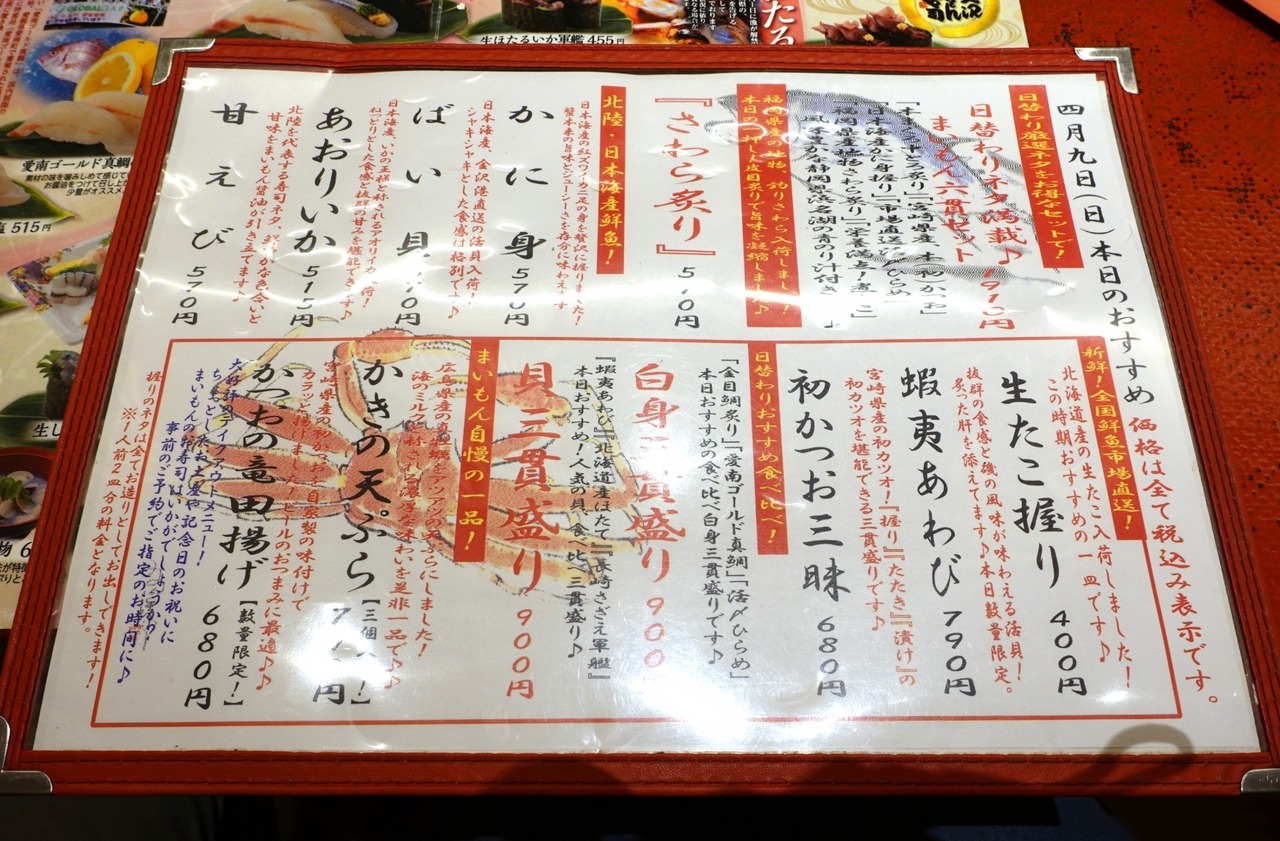 四月九日(日)本日のおすすめ
価格は全て税込み表示です。
日替わり厳選ネタをお得なセットで!
日替わりネタ満載♪
まいもん六貫セット
福岡県産の
本日の一押し♪皮目炙りで旨味を凝縮しました♪
『さわら炙り』
570円
北陸・日本海産鮮魚!
日本海産の紅ズワイカニ足の身を贅沢に握りました!
蟹本来の旨味とジューシーさを存分に味わえます
かに身 570円
日本海産、金沢港直送の活貝入荷!
シャキシャキとした食感は格別です♪
ばい貝
日本海産、いかの王様と称されるアオリイカ入荷!
ねっとりとした食感と抜群の甘みを堪能できます♪
あおりいか 515円
北陸を代表する寿司ネタ。鮮やかな色合いと
甘味をまいもん醤油が引き立てます♪
甘えび 570円
新鮮!全国鮮魚市場直送!
北海道産の生たこ入荷しました!
この時期おすすめの一皿です♪
生たこ握り 400円
抜群の食感と磯の風味が味わえる活貝!
炙った肝を添えてます♪本日数量限定。
蝦夷あわび 790円
宮崎県産の初カツオ!『握り』『たたき』『漬け』の
初カツオを堪能できる三貫盛りです♪
初かつお三昧 680円
日替わりおすすめ食べ比べ!
「金目鯛炙り」「愛南ゴールド真鯛」「活〆ひらめ」
本日おすすめの食べ比べ白身三貫盛りです♪
白身三貫盛り 900
『蝦夷あわび』『北海道産ほたて』『長崎さざえ軍艦』
本日おすすめ!人気の貝、食べ比べ三貫盛り♪
貝三貫盛り 900円
まいもん自慢の一品!
海のミルクと称される濃厚な味わいを是非一品で♪♪
かきの天ぷら
カラッと揚げました!ビールのおつまみに最適♪♪
かつおの竜田揚げ
【数量限定!】
680円
大好評テイクアウトメニュー!
ちょっとしたお土産や記念日のお祝いに
まいもんのお寿司はいかがでしょうか?
事前のご予約でご指定のお時間に♪
握りのネタは全てお造りとしてお出しできます!
※一人前2皿分の料金となります。
生ほたるいか軍艦 455円
愛南ゴールド真鯛
515円